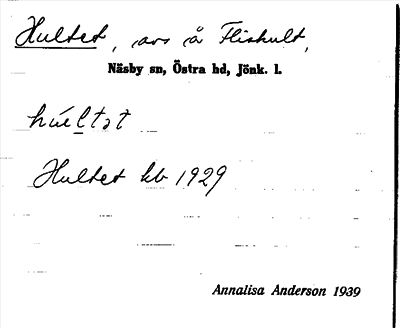 Hultet, avs å Fliskult,
Näsby sn, Östra hd, Jönk. l.
húeltət
Hultet kb 1929
Annalisa Anderson 1939